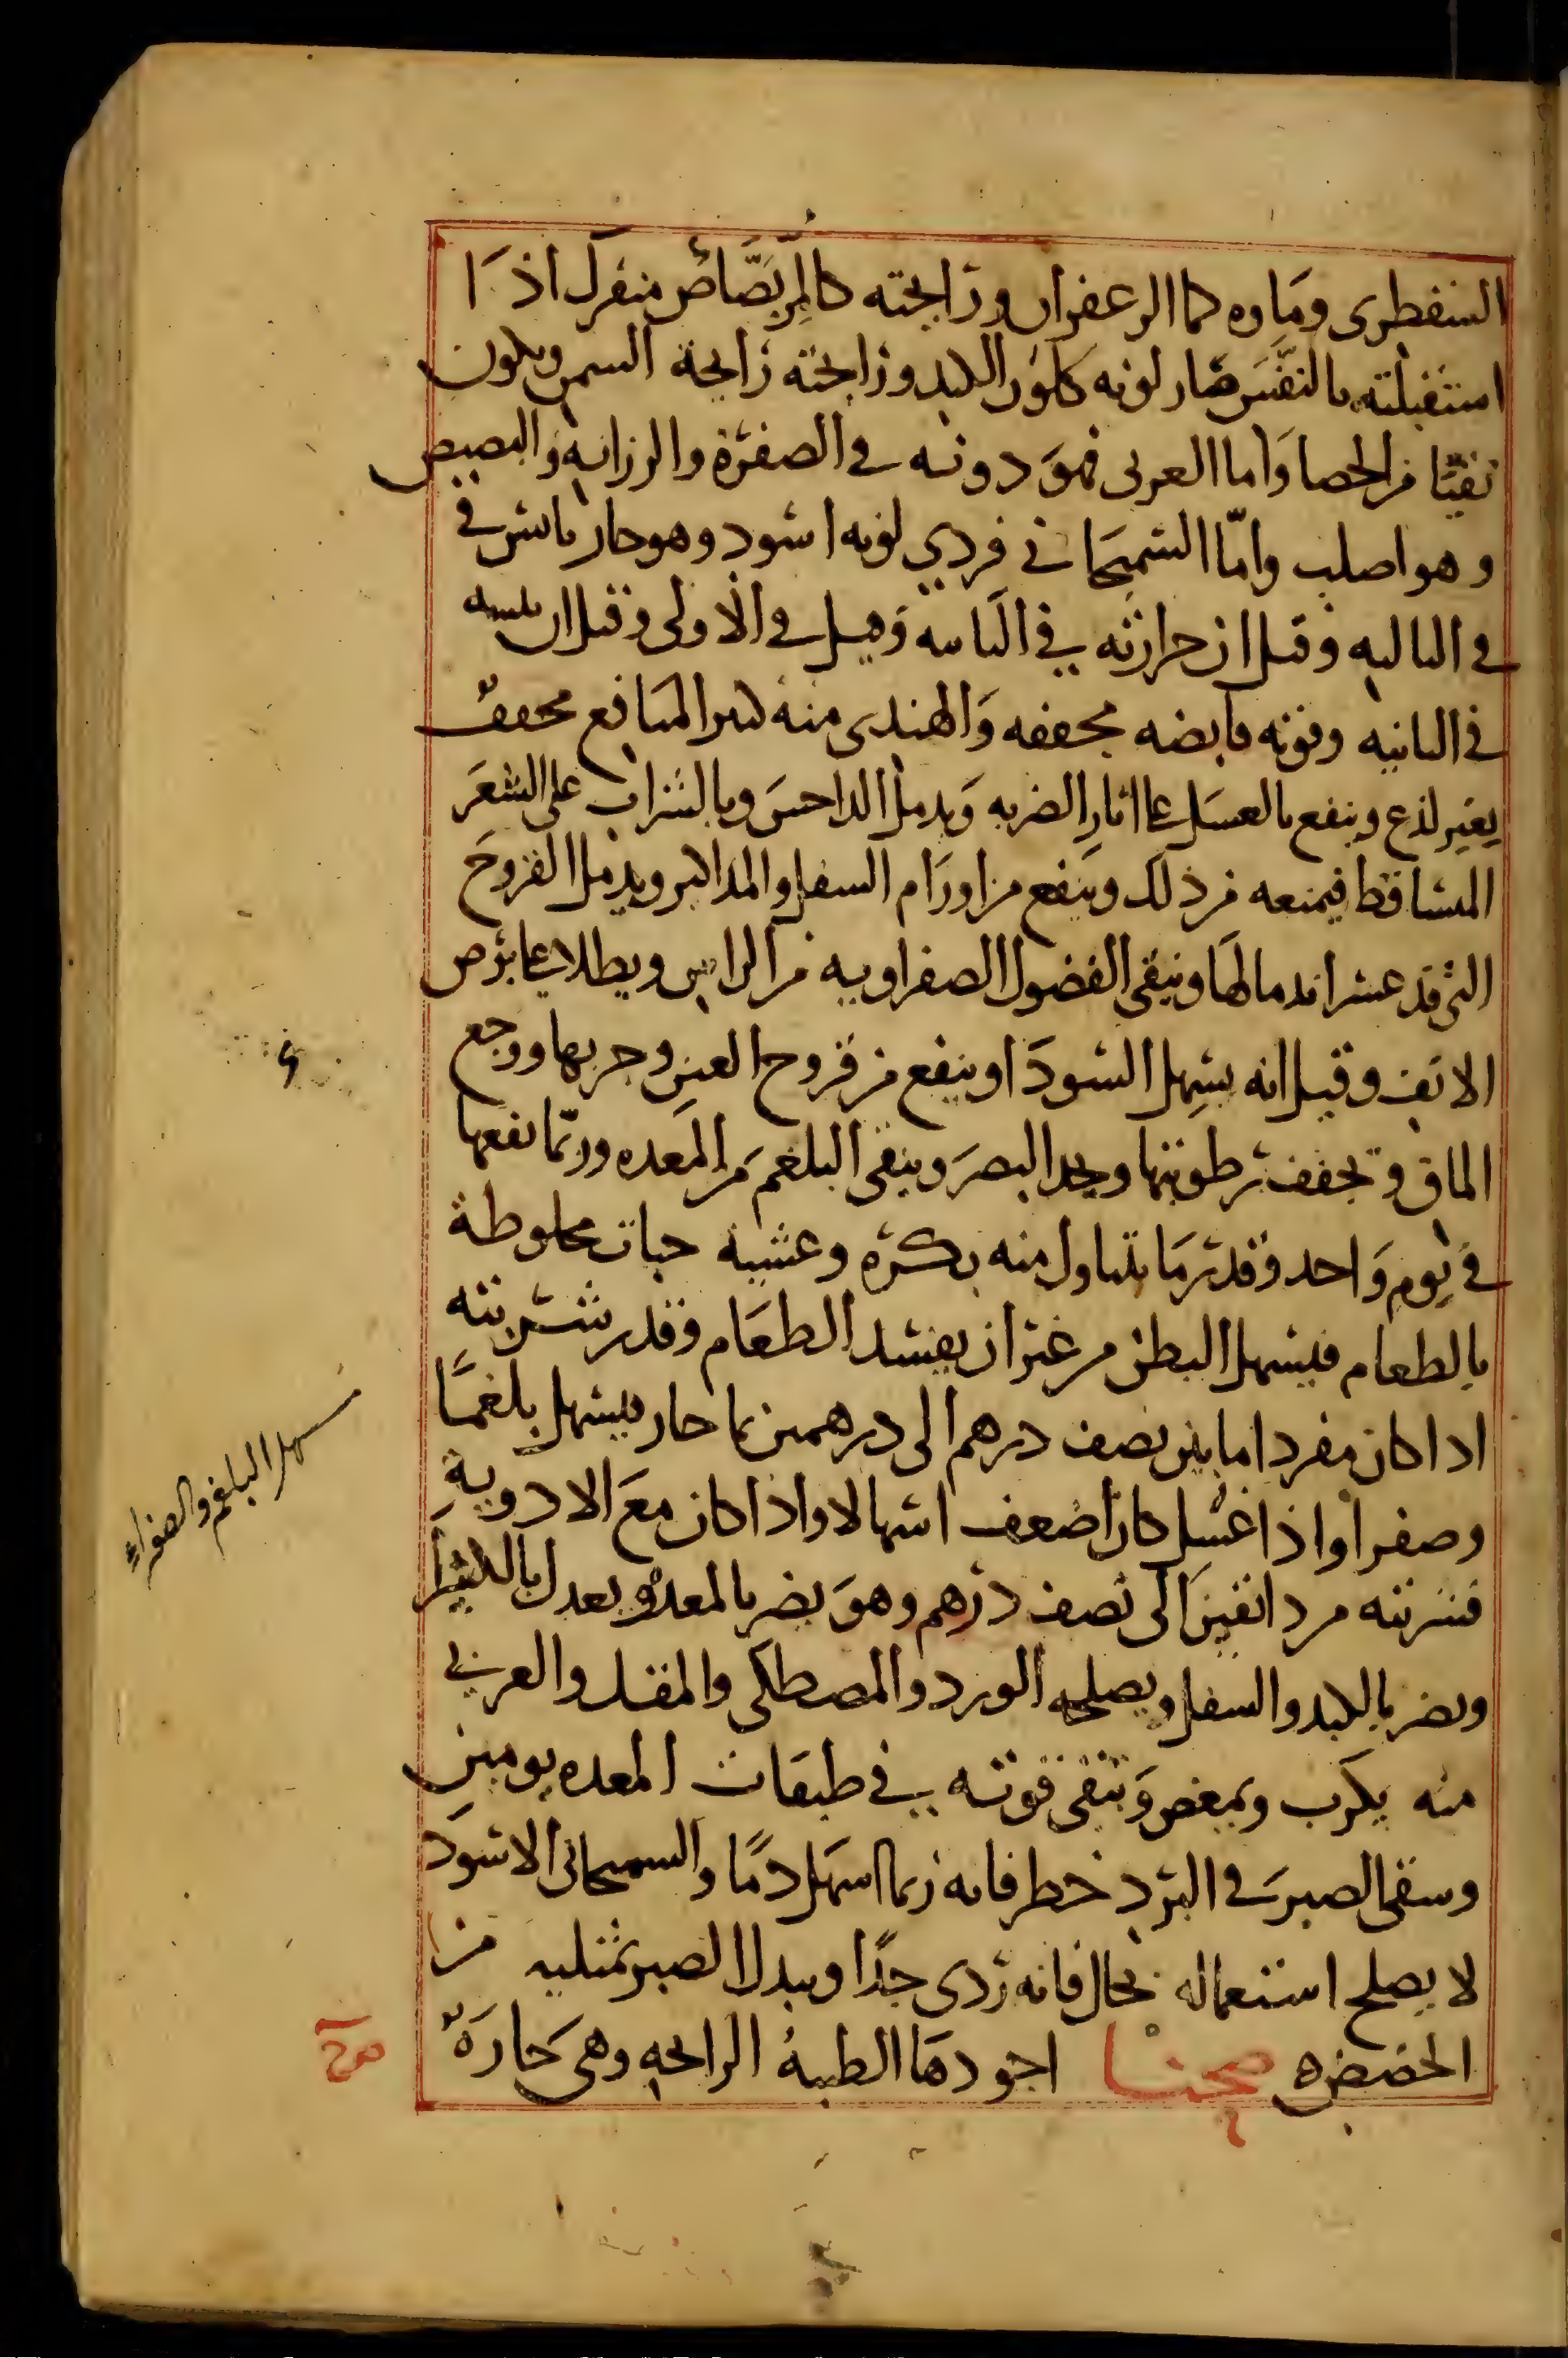 السقطرى وماوه كما الزعفران ورايحته كالمر بصاص منفرك اذا
استقبلته بالنفس صار لونه كلون الكبد ورايحته رايحة السمن ويكون
نقيا من الحصا واما العربى فهو دونه فى الصفرة والرزانه والبصيص
وهو اصلب واما السمحانى فردي لونه اسود وهو حار يابس فى
فى الثالثه وقيل ان حرارته فى الثانيه وقيل فى الاولى وقيل ان يبسه
فى الثانيه وقوته قابضه مجففه والهندى منه كثير المنافع مجفف
بغير لذع وينفع بالعسل على اثار الضربه ويدمل الداحس وبالشراب على الشعر
المتساقط فيمنعه من ذلك وينفع من اورام السفل والمذاكير ويدمل القروح
التى قد عسر اندمالها وينقى الفضول الصفراويه من الراس ويطلا على ارض
الانف وقيل انه يسهل السودا وينفع من قروح العين وجربها ووجع
الماق وتجفف رطوبتها ويحد البصر وينقى البلغم من المعده وربما نفعها
فى يوم واحد وقدر ما يتناول منه بكره وعشية حبات مخلوطة
بالطعام فيسهل البطن من غير ان يفسد الطعام وقدر شربته
اذا كان مفردا ما بين نصف درهم الى درهمين بما حار فيسهل بلغما
وصفرا واذا غسل كان اضعف اسهالا واذا كان مع الادوية
فشربته من دانقين الى نصف درهم وهو يضر بالمعده ويعدل بالكثيرا
ويضر بالكبد والسفل ويصلحه الورد والمصطكى والمقل والعربى
منه يكرب ويمغص وتبقى قوته فى طبقات المعده يومين
وسقى الصبر فى البرد خطر فانه ربما اسهل دما والسمحانى الاسود
لا يصلح استعماله بحال فانه ردى جدا وبدل الصبر بمثليه من
الحضض ه صحنا اجودها الطيبة الرايحه وهى حارة
مسهل البلغم والصفراء
صح